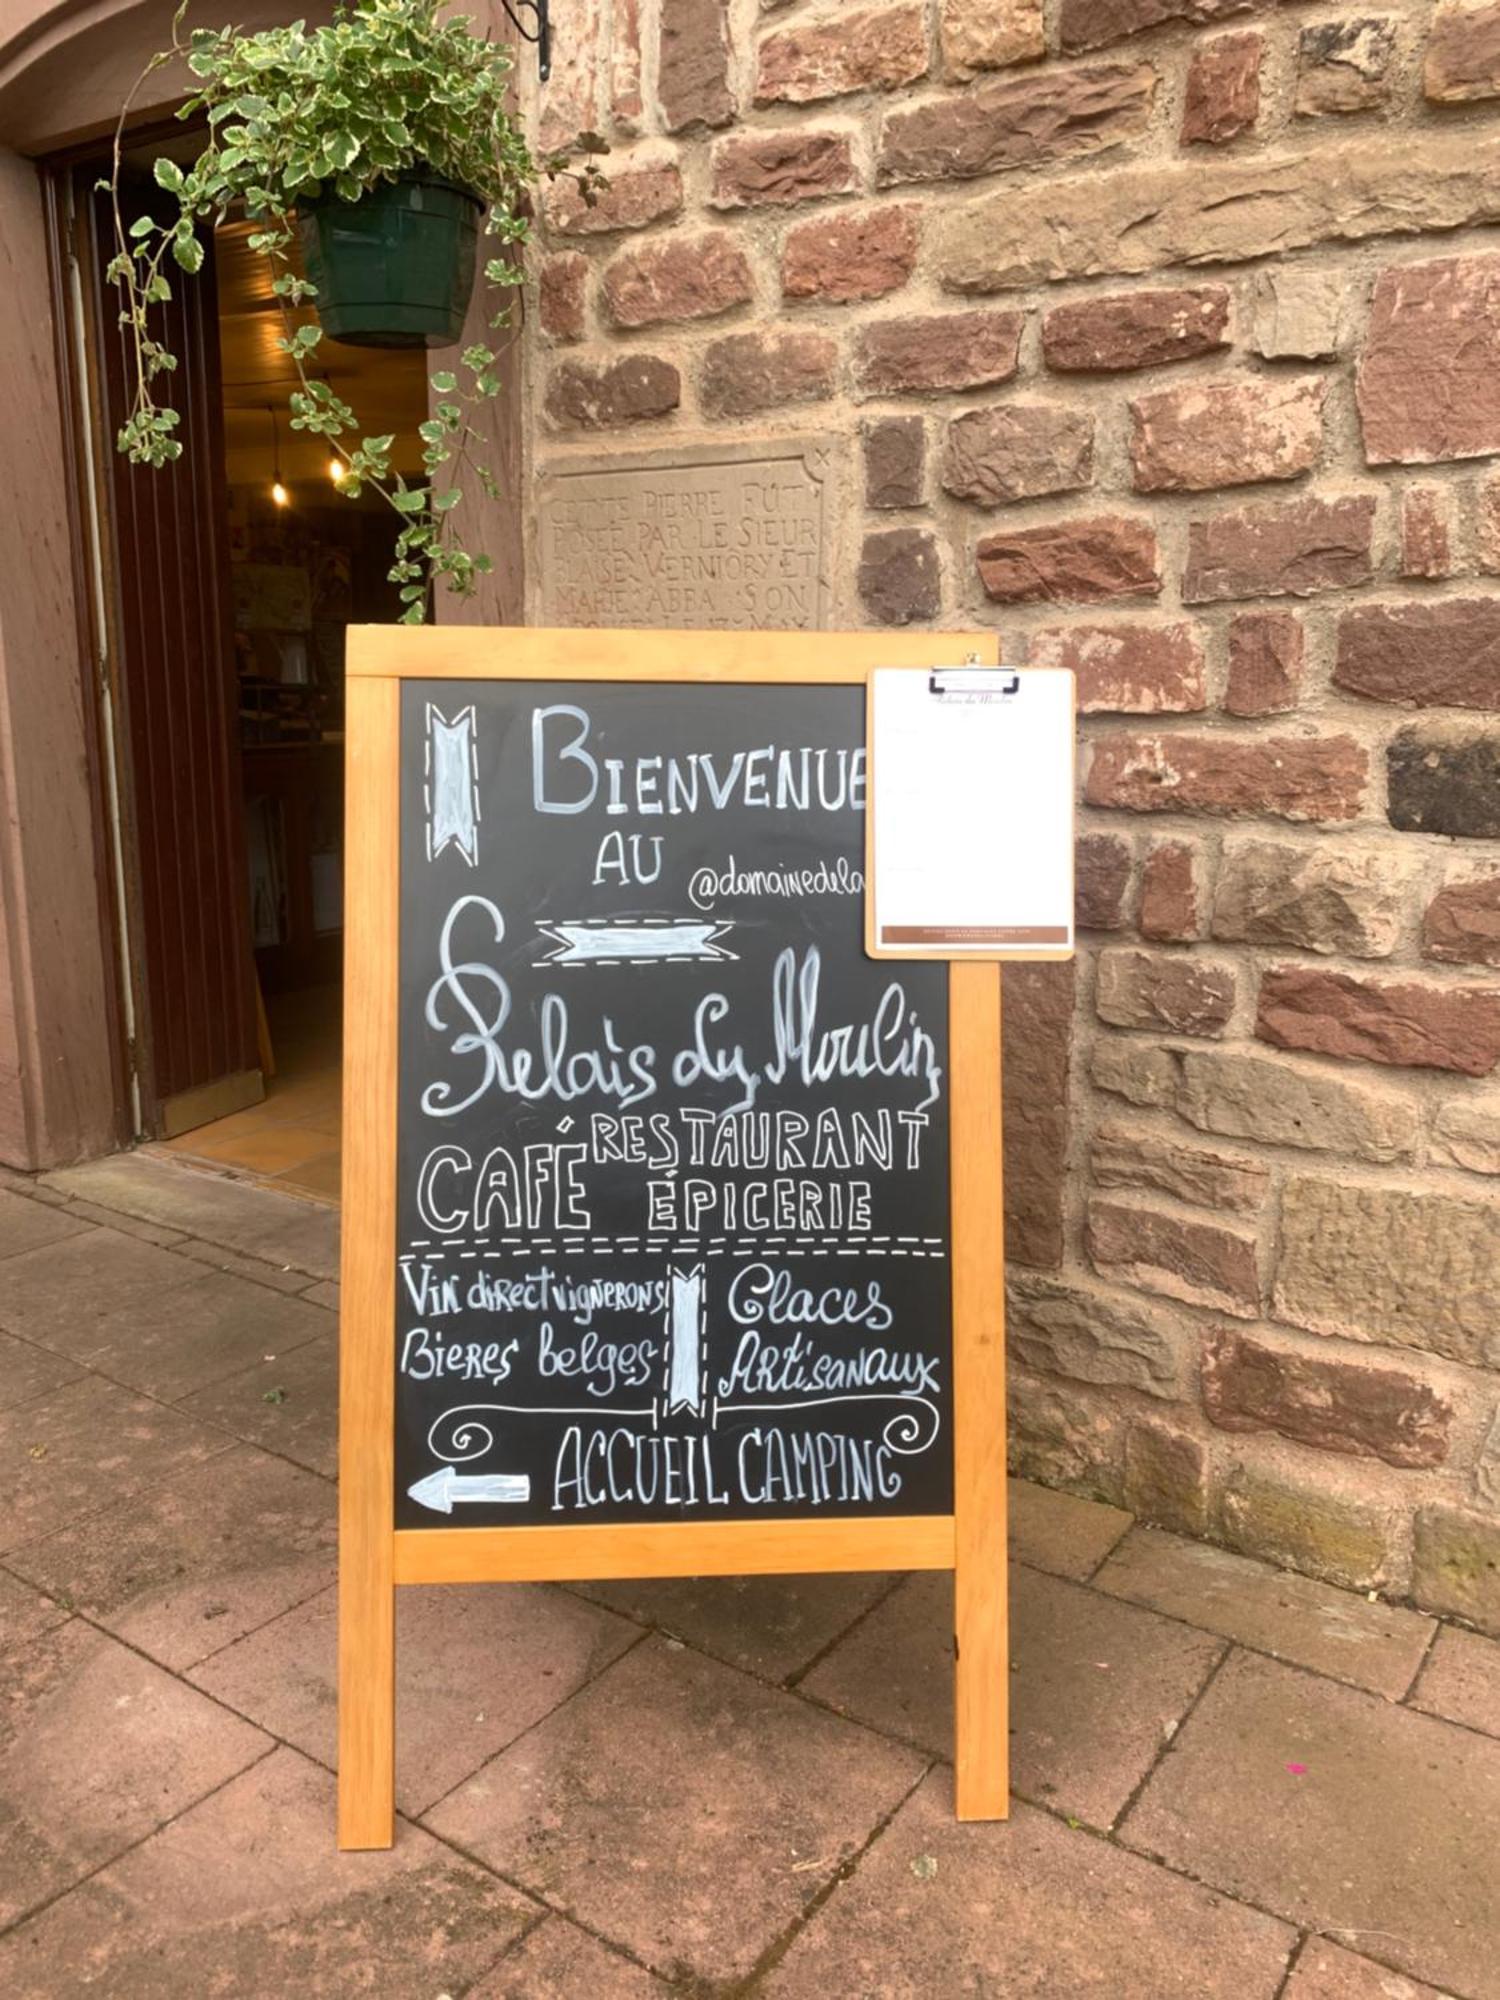 CETTE PIERRE FUT
POSÉE PAR LE SIEUR
BLAISE VERNIORY ET
MARIE ABBA SON
Relais du Moulin
BIENVENUE
AU
@domainedela
Relais du Moulin
CAFÉ RESTAURANT
ÉPICERIE
Vin direct vignerons
Bieres belges
Glaces
Artisanaux
ACCUEIL CAMPING